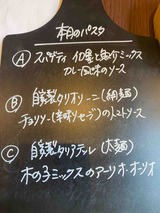 本日のパスタ
Ⓐ スパゲティ 仁星と魚介ミックス
カレー風味のソース
Ⓑ 自製タリオリーニ(細麺)
チョリソー(辛味ソーセージ)のトマトソース
Ⓒ 自製タリアテレ(太麺)
木の子ミックスのアーリオ・オーリオ